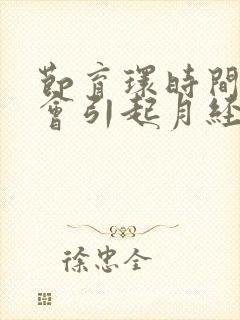 節育環時間
會引起月経
徐忠全